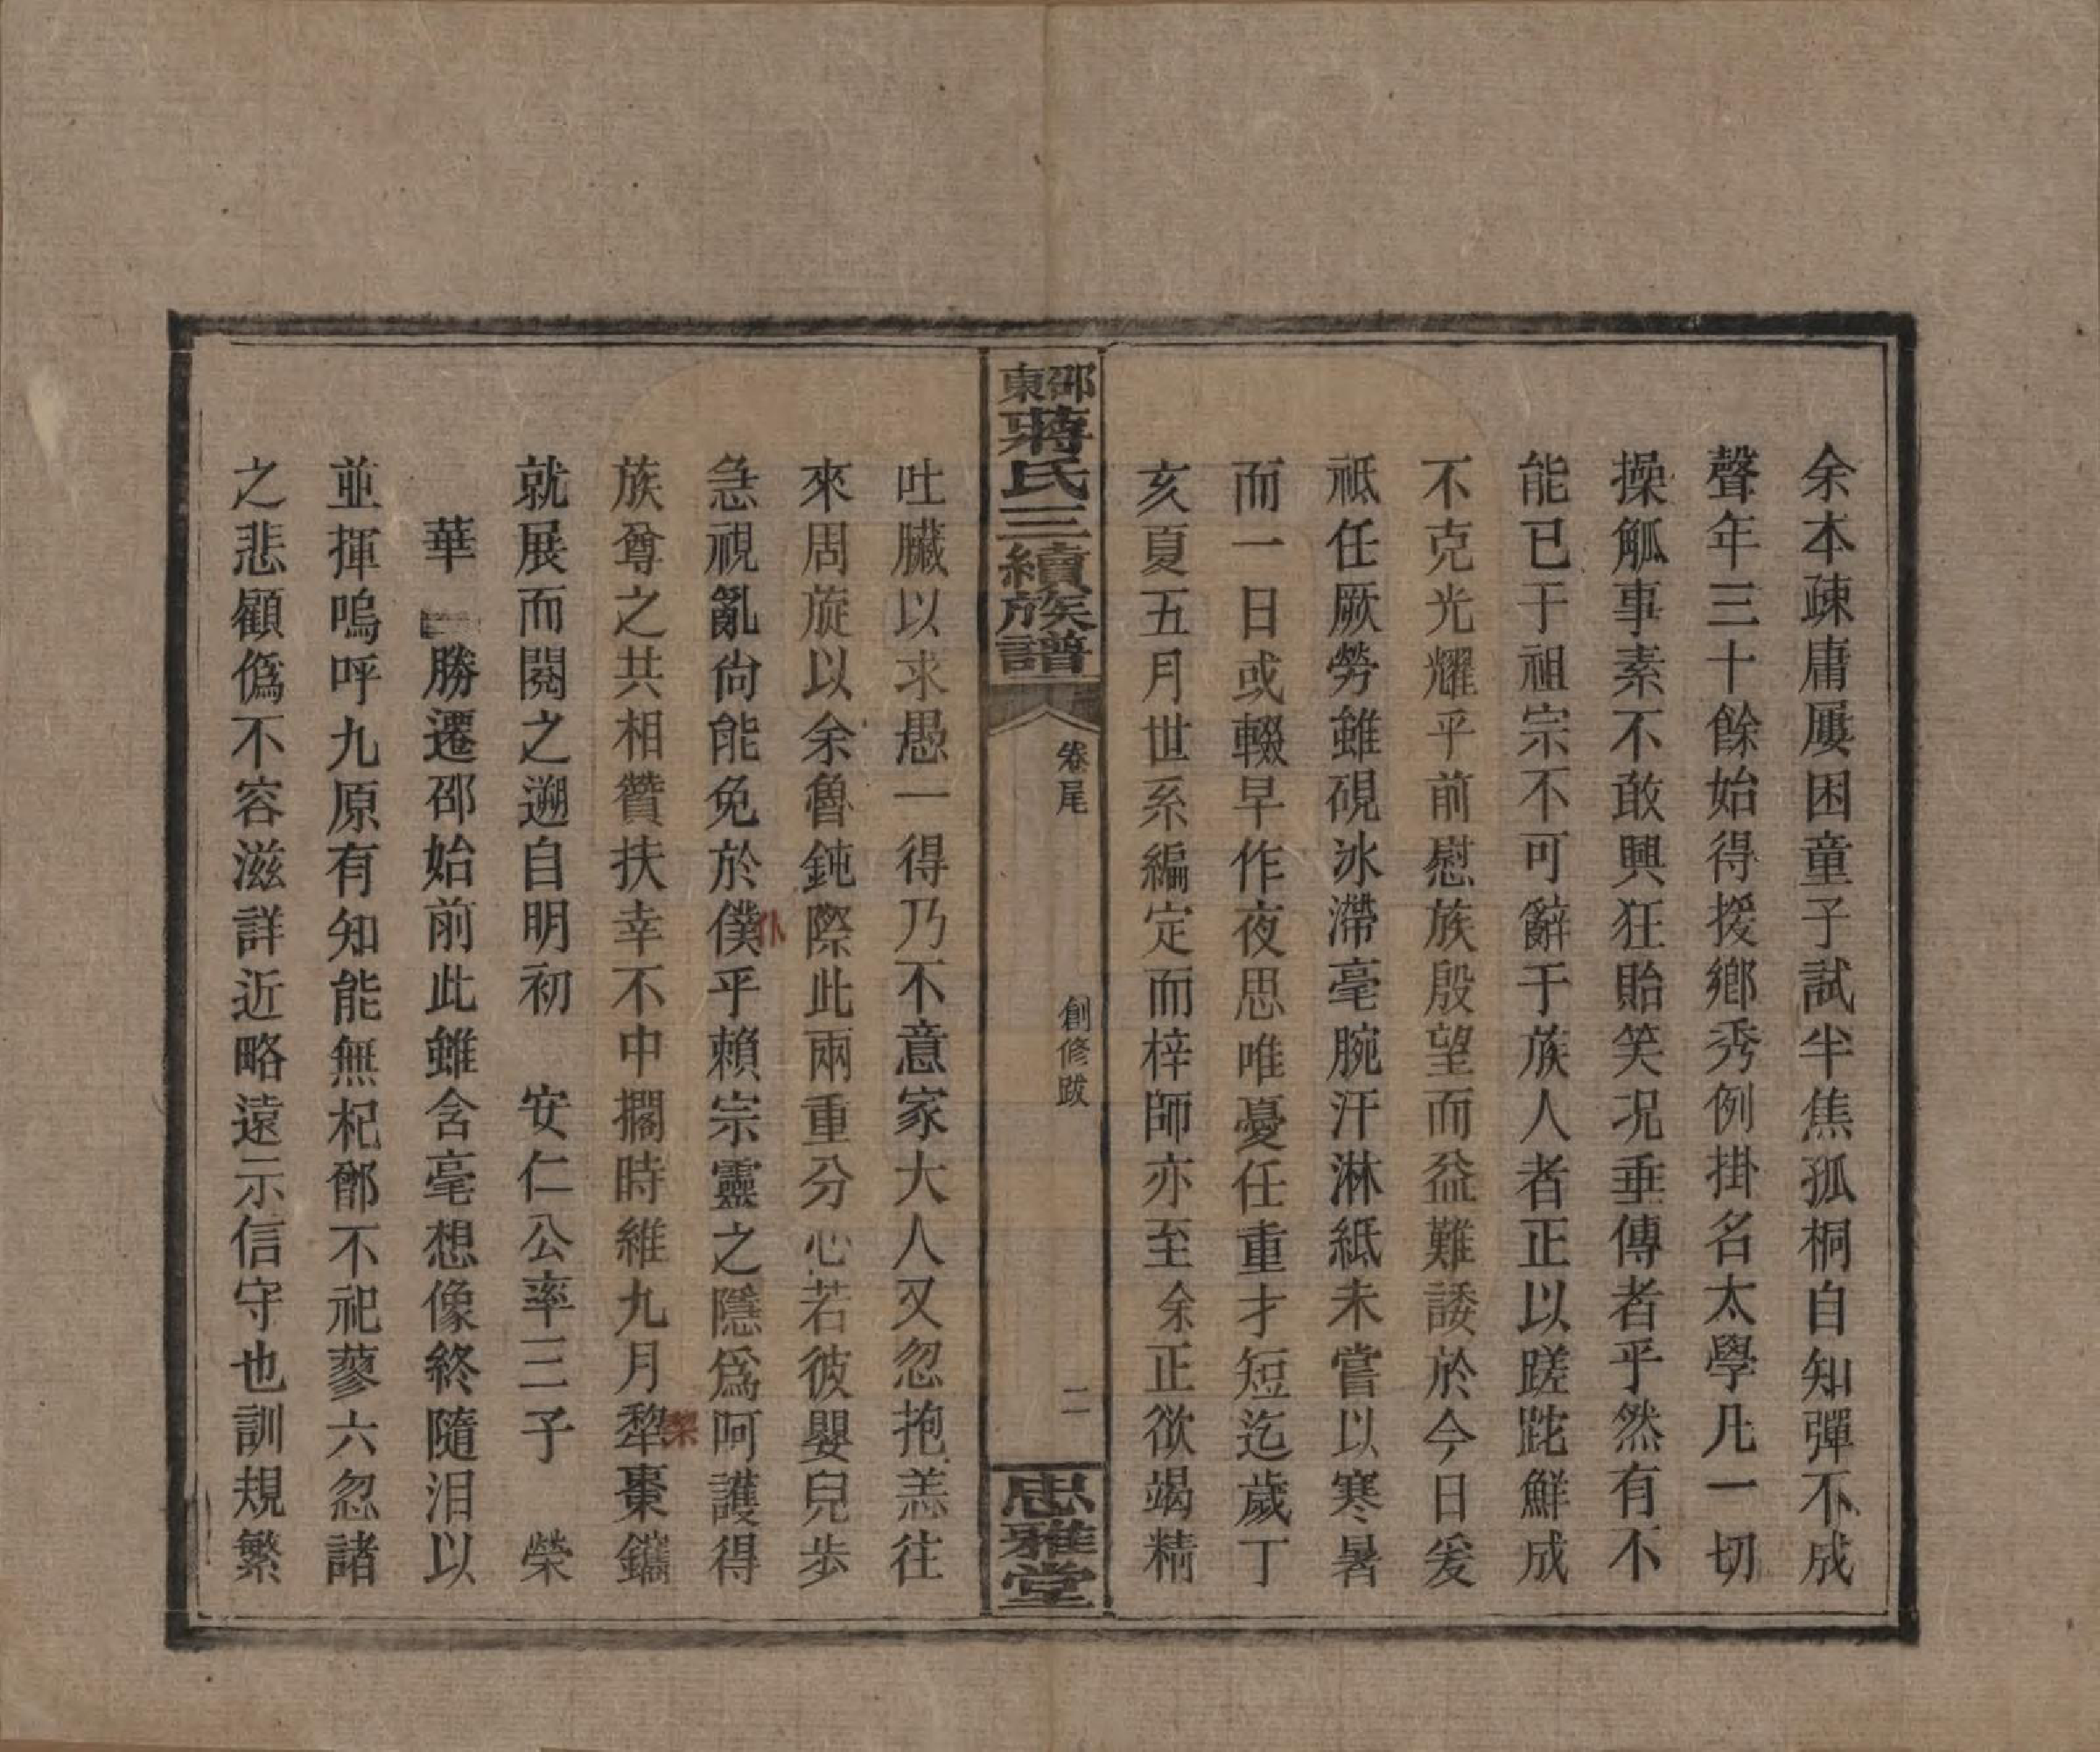 余本疎庸屢困童子試半焦孤桐自知彈不成
聲年三十餘始得援鄉秀例掛名太學凡一切
操觚事素不敢興狂貽笑况垂傳者乎然有不
能已于祖宗不可辭于族人者正以蹉跎鮮成
不克光耀乎前慰族殷望而益難諉於今日爰
祗任厥勞雖硯冰滯毫腕汗淋紙未嘗以寒暑
而一日或輟早作夜思唯憂任重才短迄歲丁
亥夏五月世系編定而梓師亦至余正欲竭精
邵東蔣氏三續族譜
卷尾
創修跋
二
忠雅堂
吐臟以求愚一得乃不意家大人又忽抱恙往
來周旋以余魯鈍際此兩重分心若彼嬰兒步
急視亂尙能免於僕乎賴宗靈之隱爲呵護得
仆
族尊之共相贊扶幸不中擱時維九月犂棗鐫
棃
就展而閱之遡自明初　安仁公率三子　榮
華　勝遷邵始前此雖含毫想像終隨泪以
並揮嗚呼九原有知能無杞鄫不祀蓼六忽諸
之悲顧僞不容滋詳近略遠示信守也訓規繁